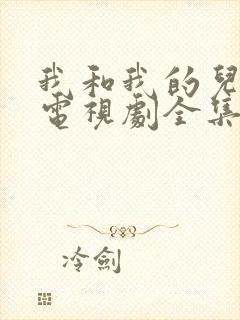 我和我的兒
電視劇全集
冷劍